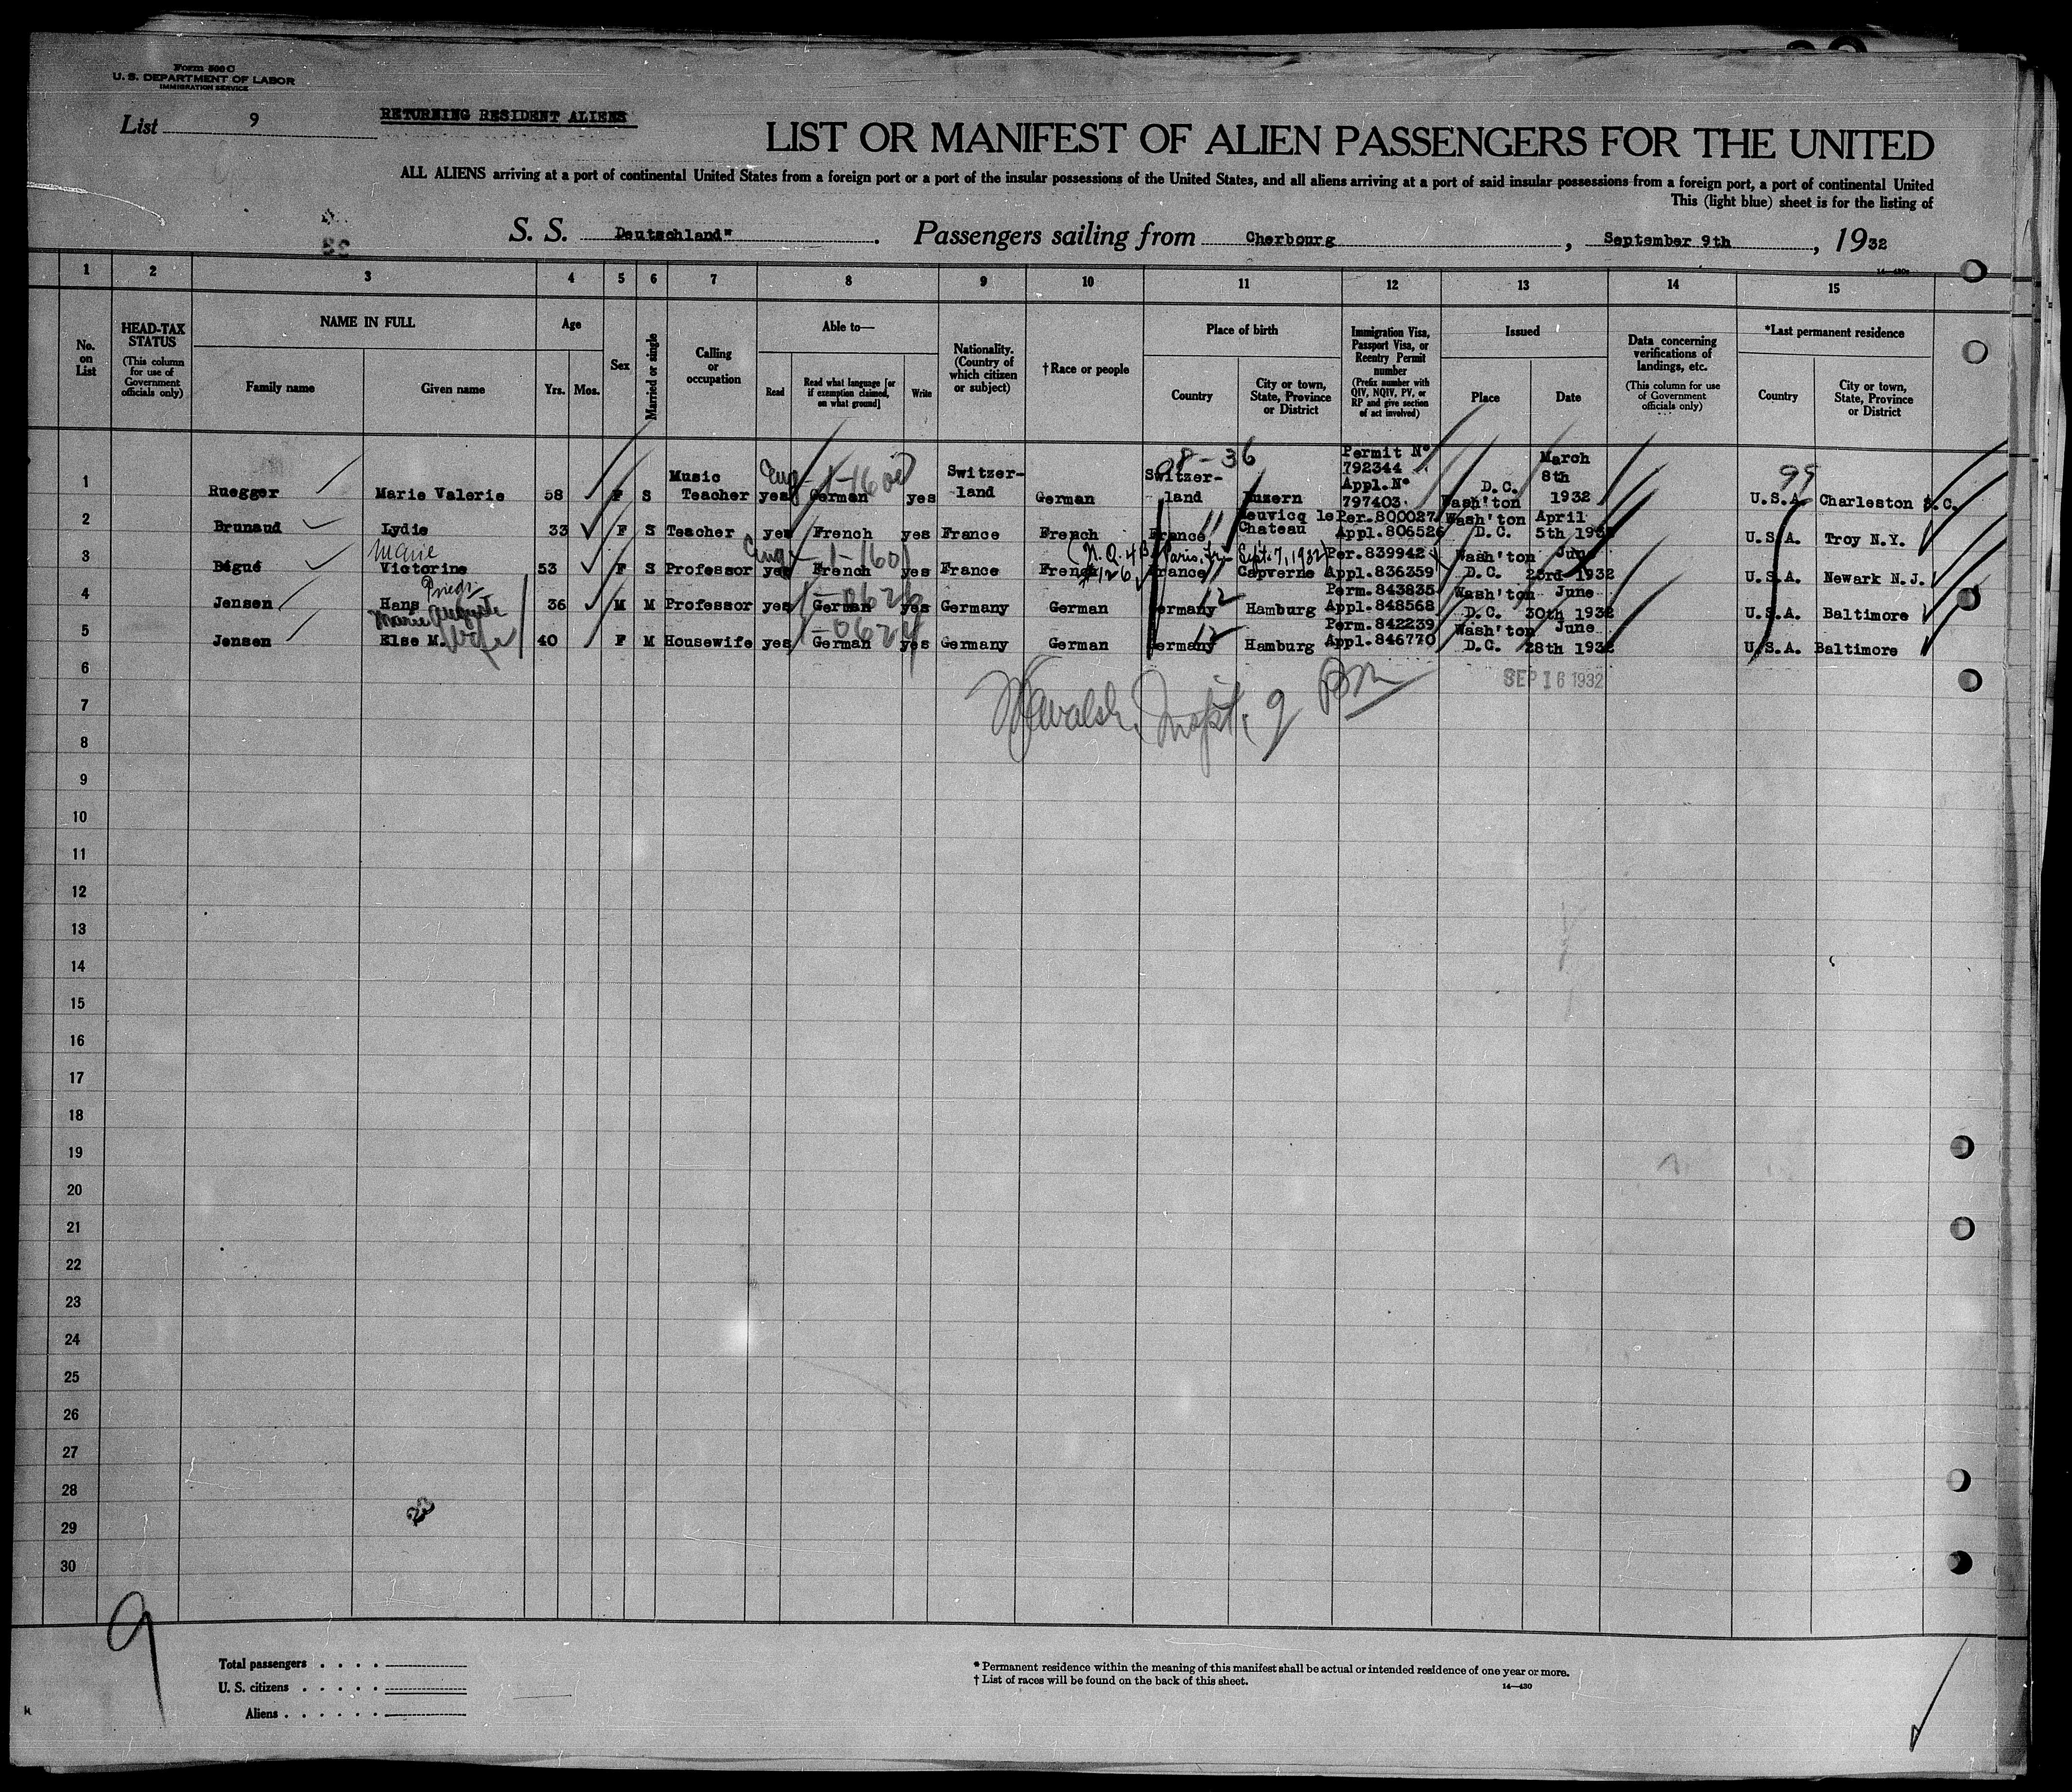 Form 500 C
U. S. DEPARTMENT OF LABOR
IMMIGRATION SERVICE
List 9
RETURNING RESIDENT ALIENS
LIST OR MANIFEST OF ALIEN PASSENGERS FOR THE UNITED
ALL ALIENS arriving at a port of continental United States from a foreign port or a port of the insular possessions of the United States, and all aliens arriving at a port of said insular possessions from a foreign port, a port of continental United
This (light blue) sheet is for the listing of
S. S. Deutschland" . Passengers sailing from Cherbourg , September 9th , 1932
1 2 3 4 5 6 7 8 9 10 11 12 13 14 15
No. on List
HEAD-TAX STATUS (This column for use of Government officials only)
NAME IN FULL Family name Given name
Age Yrs. Mos.
Sex
Married or single
Calling or occupation
Able to— Read Read what language [or if exemption claimed, on what ground] Write
Nationality. (Country of which citizen or subject)
†Race or people
Place of birth Country City or town, State, Province or District
Immigration Visa, Passport Visa, or Reentry Permit number (Prefix number with QIV, NQIV, PV, or RP and give section of act involved)
Issued Place Date
Data concerning verifications of landings, etc. (This column for use of Government officials only)
*Last permanent residence Country City or town, State, Province or District
1 Ruegger Marie Valerie 58 F S Music Teacher yes German yes Switzer-land German Switzer-land Luzern Permit N° 792344 Appl.N° 797403. D.C. Wash'ton March 8th 1932 99 U.S.A. Charleston S.C.
2 Brunaud Lydie 33 F S Teacher yes French yes France French France Chateau Per.800027 Appl.806526 Wash'ton D.C. April 5th 1932 U.S.A. Troy N.Y.
3 Bégué Marie Victorine 53 F S Professor yes French yes France French France Capverne Per.839942 Appl.836359 Wash'ton D.C. June 23rd 1932 U.S.A. Newark N.J.
(N.Q. 4 Paris, Sept. 7, 1932)
4 Jensen Hans 36 M M Professor yes German yes Germany German Germany Hamburg Perm.843835 Appl.848568 Wash'ton D.C. June 30th 1932 U.S.A. Baltimore
5 Jensen Marie Auguste Else M. Wife 40 F M Housewife yes German yes Germany German Germany Hamburg Perm.842239 Appl.846770 Wash'ton D.C. June 28th 1932 U.S.A. Baltimore
6
SEP 16 1932
7
8
9
10
11
12
13
14
15
16
17
18
19
20
21
22
23
24
25
26
27
28
29
30
9
Total passengers
U. S. citizens
Aliens
* Permanent residence within the meaning of this manifest shall be actual or intended residence of one year or more.
† List of races will be found on the back of this sheet.
14—430